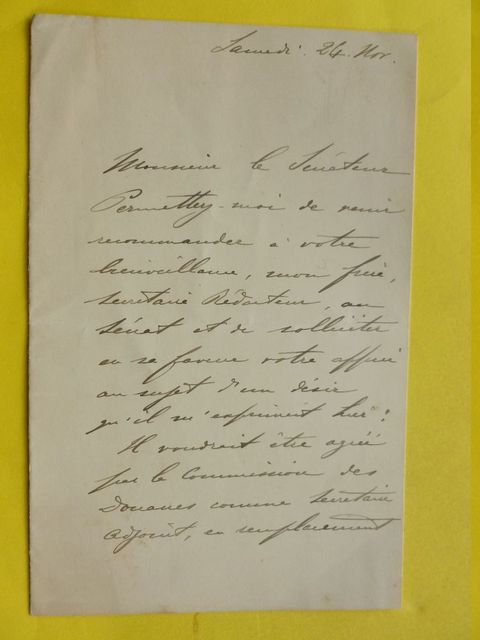 Samedi. 24. Nov.
Monsieur le Sénateur
Permettez-moi de venir
recommander à votre
bienveillance, mon frère,
secrétaire Rédacteur, au
Sénat et de solliciter
en sa faveur votre appui
au sujet d'un désir
qu'il m'exprimait hier :
Il voudrait être agréé
par la Commission des
Douanes comme secrétaire
adjoint, en remplacement